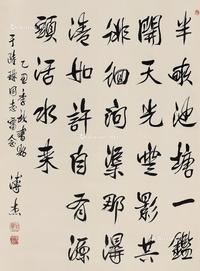 半畝池塘一鑑
開天光雲影共
徘徊問渠那得
清如許自有源
頭活水来
乙丑季秋書勉
同志留念
溥杰